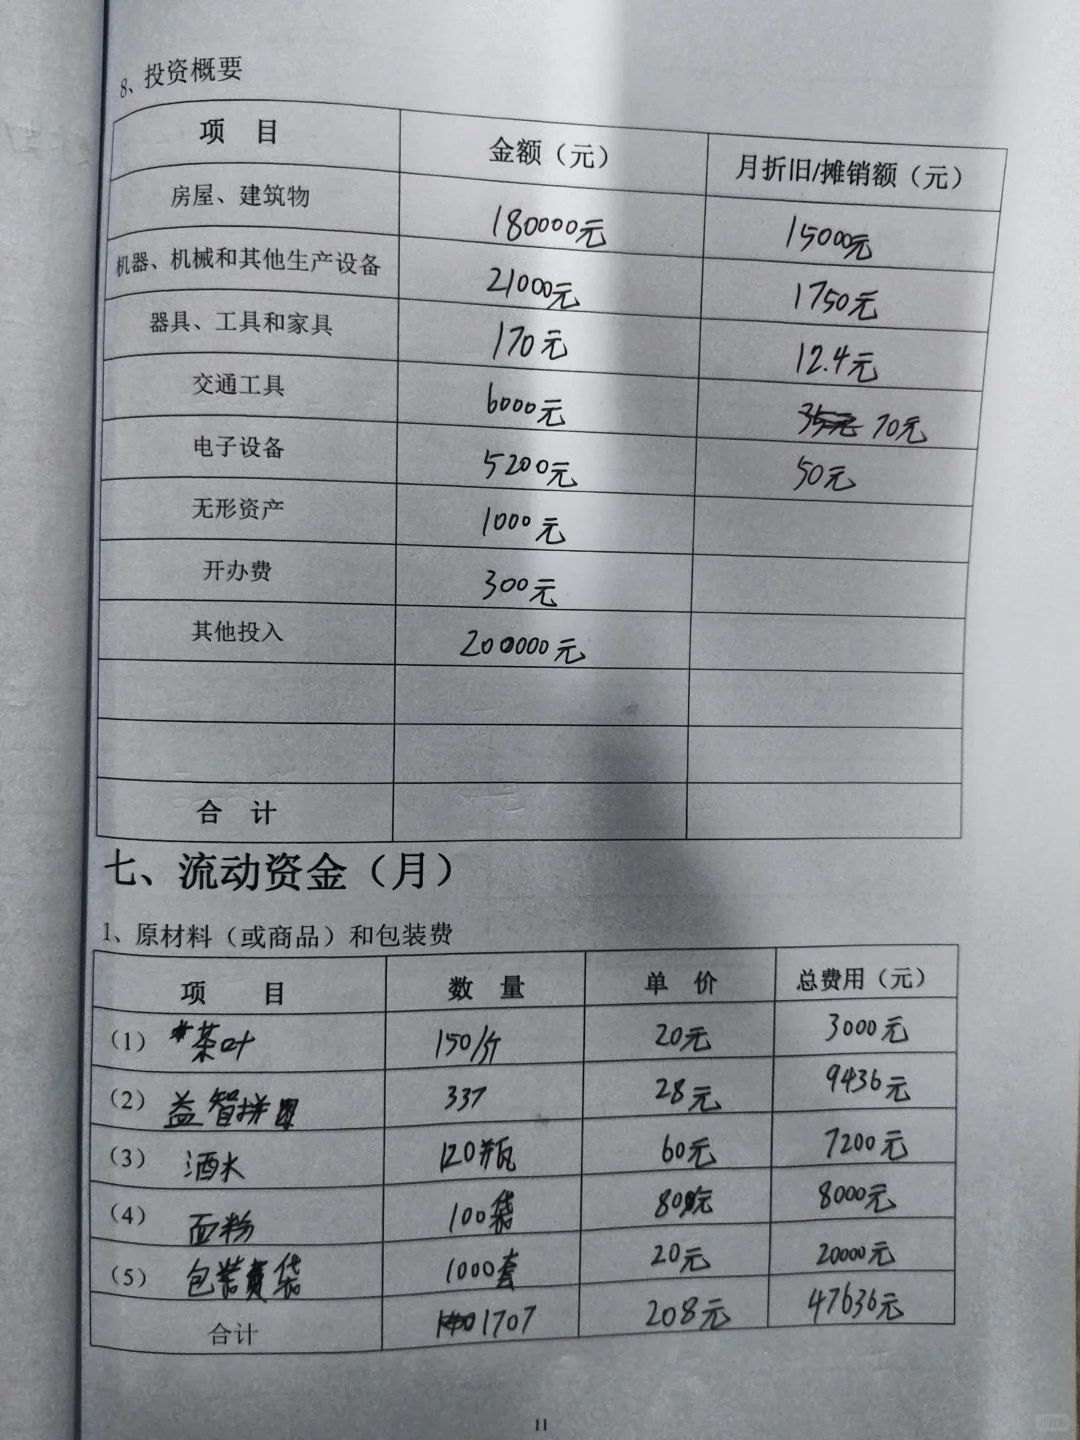 8、投资概要
项 目 金额（元） 月折旧/摊销额（元）
房屋、建筑物 180000元 15000元
机器、机械和其他生产设备 21000元 1750元
器具、工具和家具 170元 12.4元
交通工具 6000元 35元 70元
电子设备 5200元 50元
无形资产 1000元
开办费 300元
其他投入 200000元
合 计
七、流动资金（月）
1、原材料（或商品）和包装费
项 目 数 量 单 价 总费用（元）
（1） 茶叶 150/斤 20元 3000元
（2） 益智拼图 337 28元 9436元
（3） 酒水 120瓶 60元 7200元
（4） 面粉 100袋 80元 8000元
（5） 包装袋 1000套 20元 20000元
合计 1707 208元 47636元
11